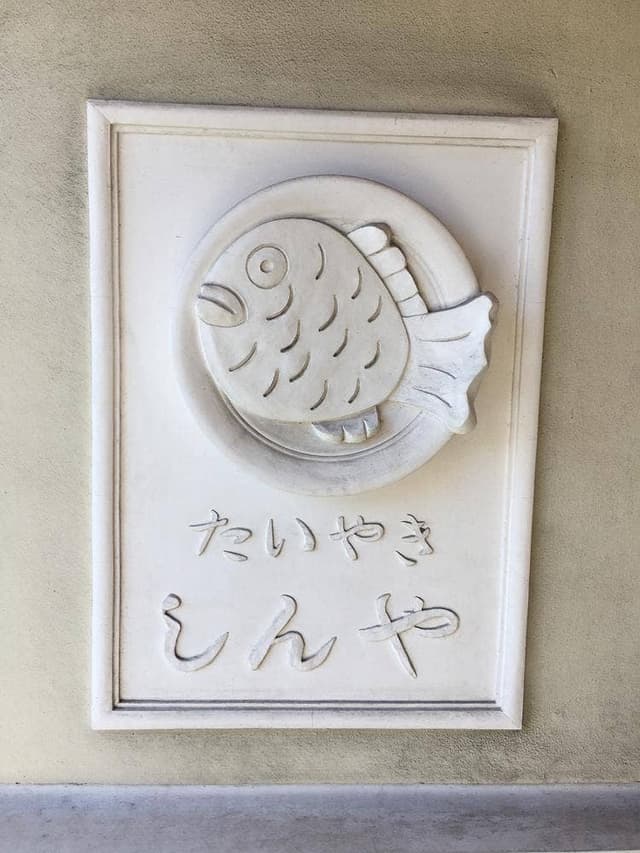 たいやき
しんや